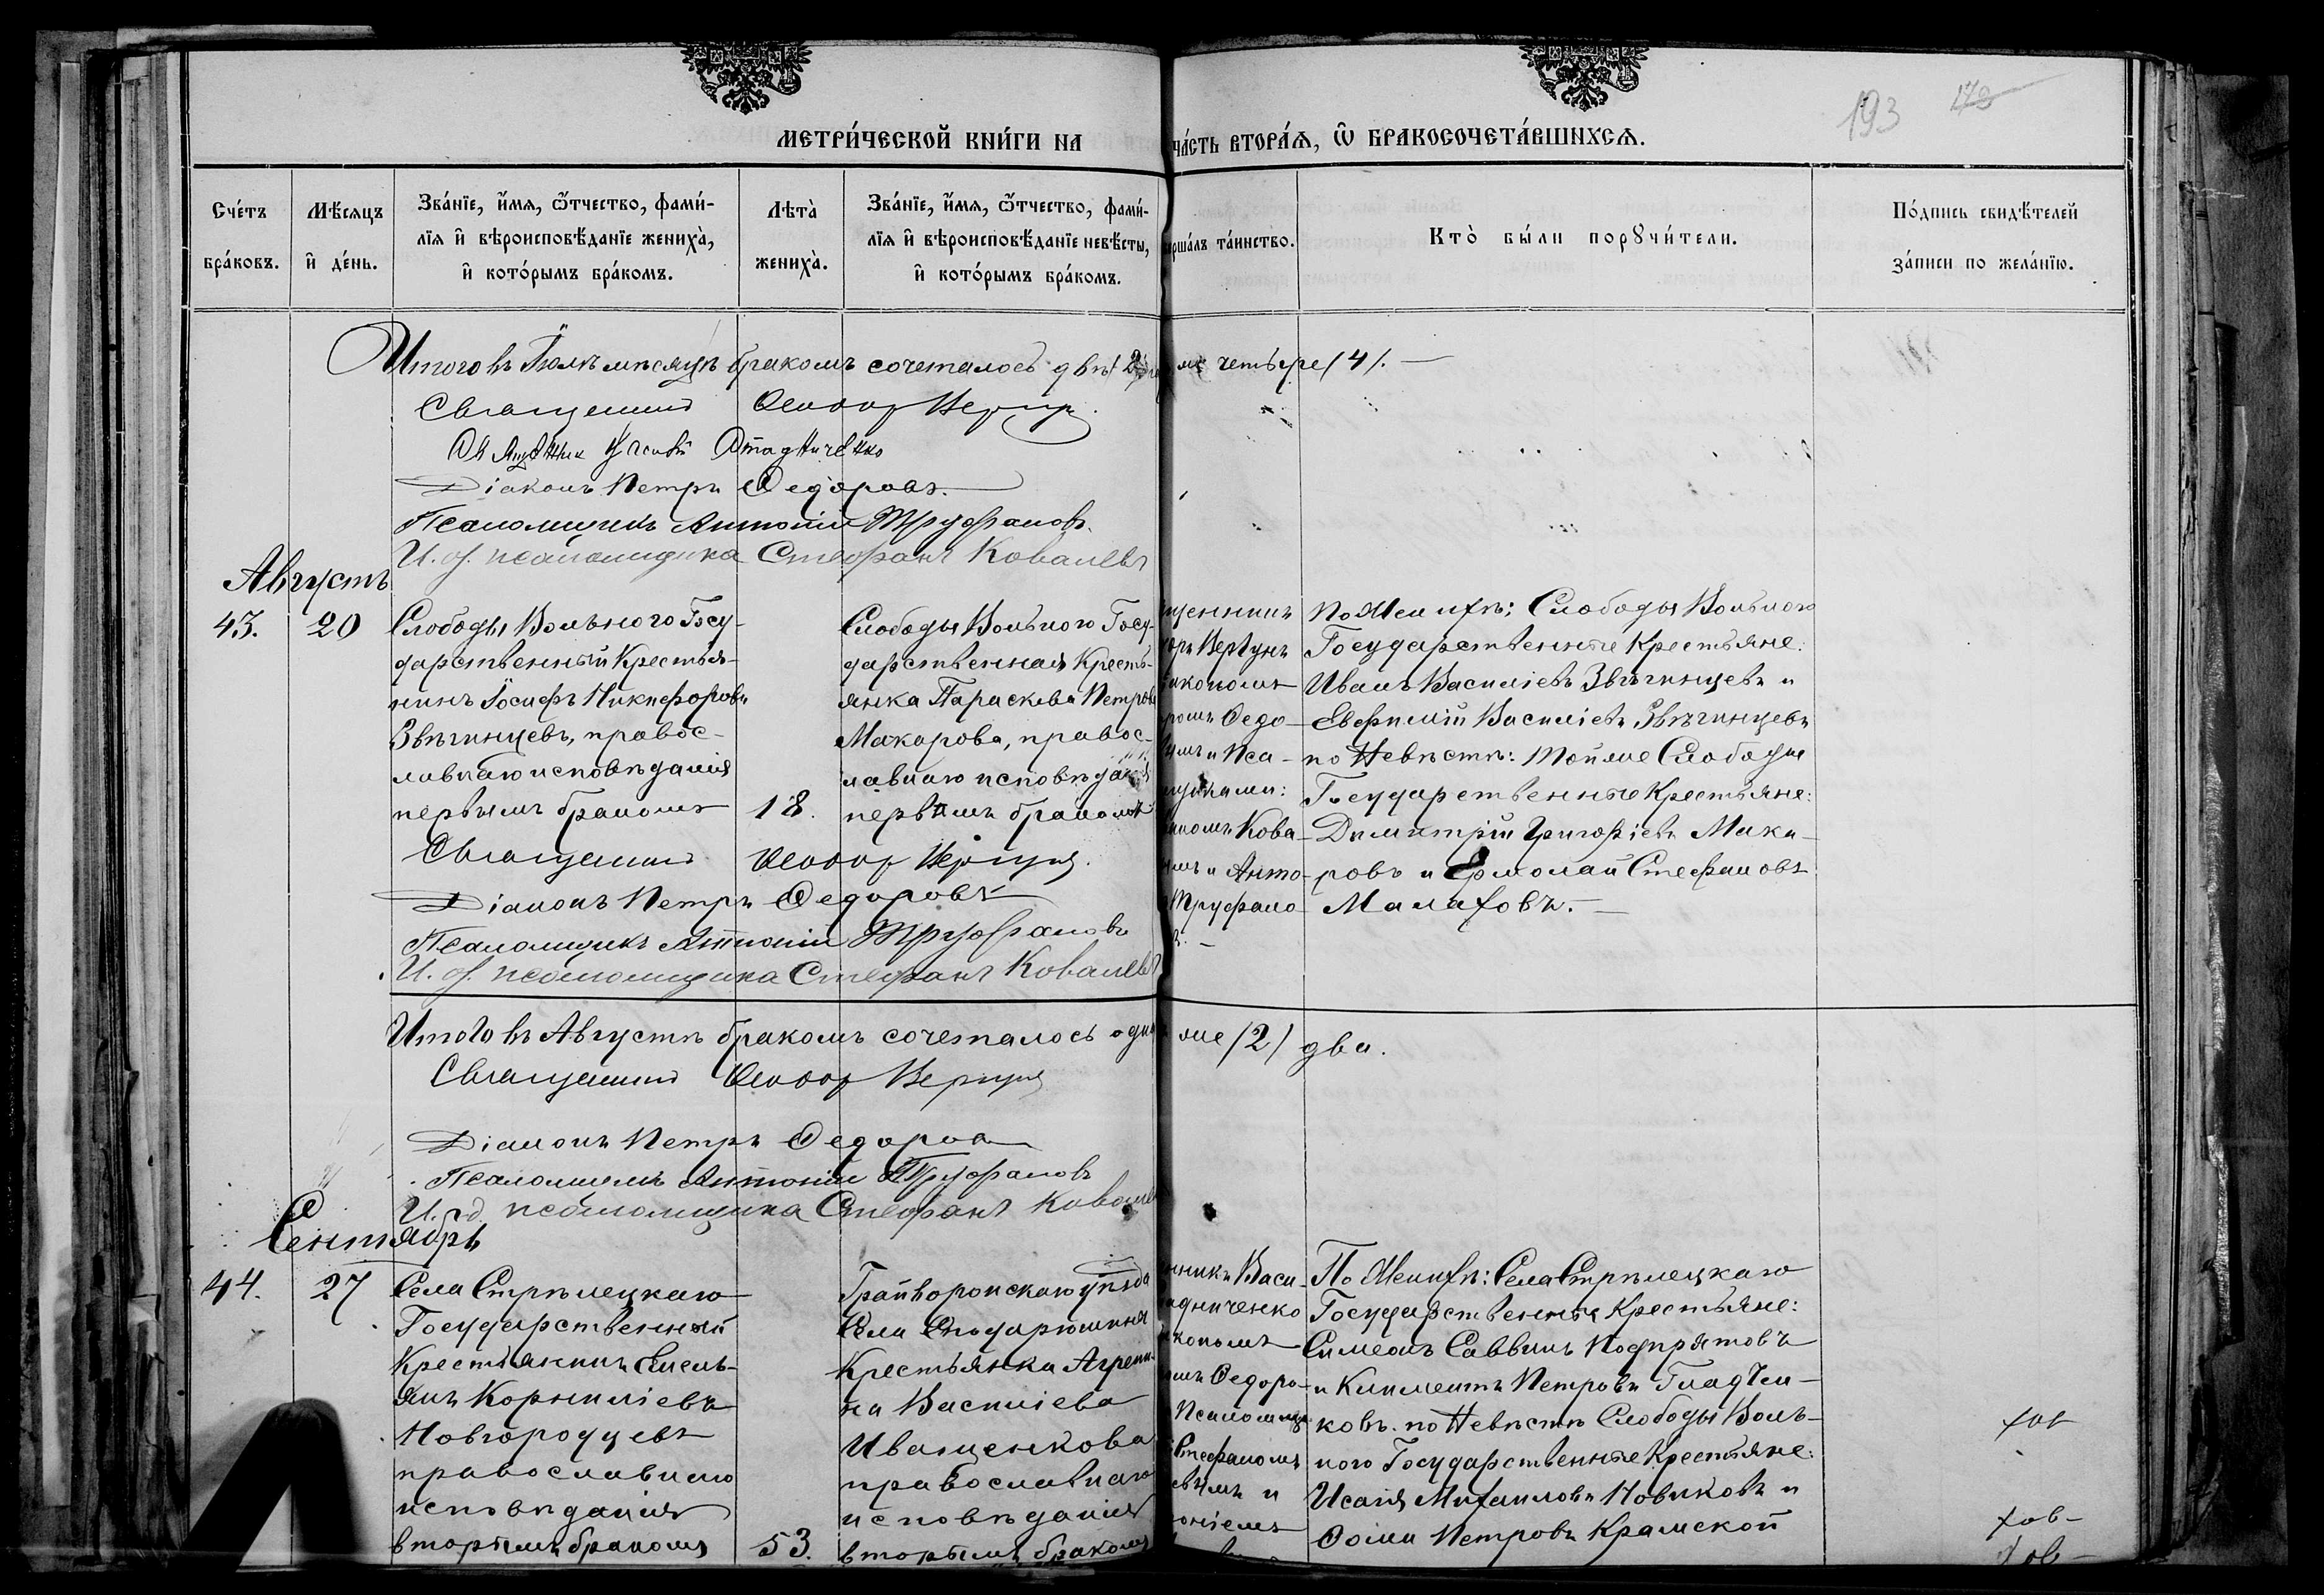 193 173
МЕТРИ́ЧЕСКОЙ КНИ́ГИ НА
ЧА́СТЬ ВТОРА́Я, Ѡ БРАКОСОЧЕТА́ВШИХСѦ.
Сче́тъ бра́ковъ.
Мѣ́сяцъ и де́нь.
Зва́нїе, и́мѧ, ѻ́тчество, фами́-
лїѧ и вѣроисповѣ́данїе жениха̀,
и кото́рымъ бра́комъ.
Лѣта̀ жениха̀.
Зва́нїе, и́мѧ, ѻ́тчество, фами́-
лїѧ и вѣроисповѣ́данїе невѣ́сты,
и кото́рымъ бра́комъ.
ершалъ та́инство.
Кто̀ бы́ли порꙋчи́тели.
По́дпись свидѣ́телей
за́писи по жела́нїю.
Итого въ Іюлѣ мѣсяцѣ бракомъ сочеталось двѣ
четыре /4/.
Священникъ Ѳеодоръ Вертунъ
Священникъ
Діаконъ Петръ Ѳедоровъ.
Псаломщикъ Антоній Труфановъ.
И. д. псаломщика Стефанъ Ковалевъ
Августъ
43.
20
Слободы Вольного Госу-
дарственный Крестья-
нинъ Іосифъ Никифоровъ
Звѣгинцевъ, правос-
лавнаго исповѣданія
первымъ бракомъ
18.
Слободы Вольного Госу-
дарственная Кресть-
янка Параскева Петрова
Макарова, правос-
лавнаго исповѣданія
первымъ бракомъ
щенникъ
оръ Вертунъ
іакономъ
тромъ Ѳедо-
ымъ и Пса-
мщиками:
фаномъ Кова-
ымъ и Анто-
Труфано-
ъ. —
По Женихѣ: Слободы Вольного
Государственные Крестьяне:
Иванъ Василіевъ Звѣгинцевъ и
Евфимій Василіевъ Звѣгинцевъ
по Невѣстѣ: тойже Слободы
Государственные Крестьяне:
Димитрій Григоріевъ Мака-
ровъ и Ермолай Стефановъ
Малаховъ. —
Священникъ Ѳеодоръ Вертунъ.
Діаконъ Петръ Ѳедоровъ
Псаломщикъ Антоній Труфановъ
И. д. псаломщика Стефанъ Ковалевъ
Итого въ Августѣ бракомъ сочеталось одна
же /2/ два.
Священникъ Ѳеодоръ Вертунъ
Діаконъ Петръ Ѳедоровъ
Псаломщикъ Антоній Труфановъ
И. д. псаломщика Стефанъ Ковалев
Сентябрь
44.
27
Села Стрѣлецкаго
Государственный
Крестьянинъ Емель-
янъ Корниліевъ
Новгородцевъ
православнаго
исповѣданія
вторымъ бракомъ
53.
Грайворонскаго уѣзда
Села
Крестьянка Агрепи-
на Василіева
Иващенкова
православнаго
исповѣданія
вторымъ бракомъ
нникъ Васи-
адниченко
акономъ
омъ Ѳедоро-
Псаломщи
Стефаномъ
евымъ и
оніемъ
По Женихѣ: Села Стрѣлецкаго
Государственные Крестьяне:
Симеонъ Саввинъ Подпрятовъ
и Климентъ Петровъ Гладчен-
ковъ. по Невѣстѣ Слободы Воль-
ного Государственные Крестьяне:
Исаія Михаиловъ Новиковъ и
Ѳома Петровъ Крамской